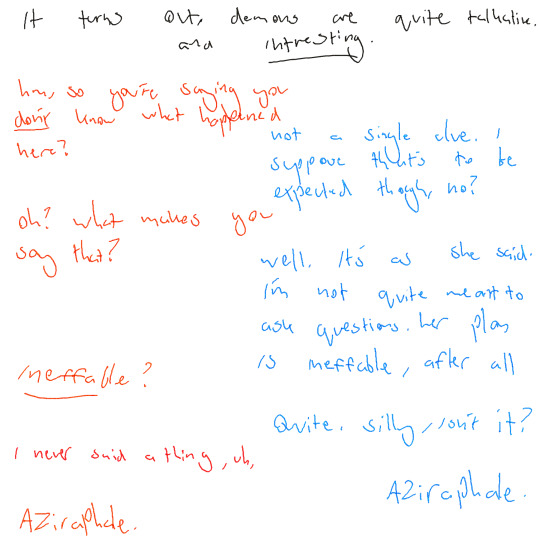 It turns out, demons are quite talkative.
and intresting.
hm, so you're saying you
don't know what happened
here?
not a single clue. I
suppose that's to be
expected though, no?
oh? what makes you
say that?
well. It's as she said.
I'm not quite meant to
ask questions. her plan
is ineffable, after all
Ineffable?
Quite. silly, isn't it?
I never said a thing, uh,
AZiraphale.
AZiraphale.